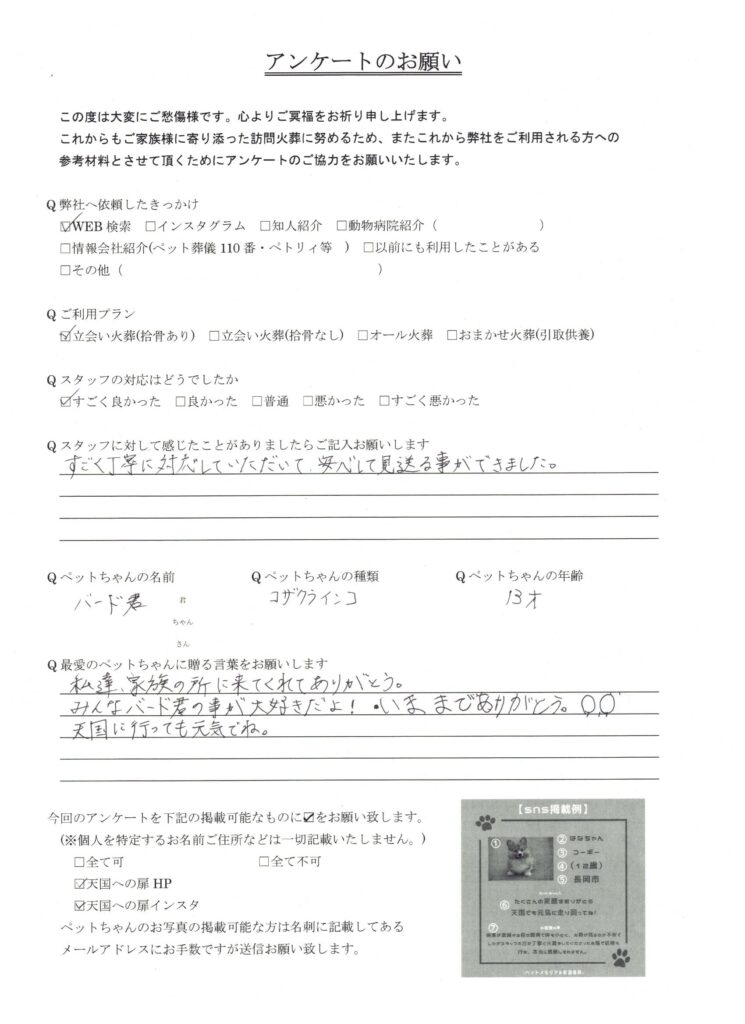 アンケートのお願い
この度は大変にご愁傷様です。心よりご冥福をお祈り申し上げます。
これからもご家族様に寄り添った訪問火葬に努めるため、またこれから弊社をご利用される方への
参考材料とさせて頂くためにアンケートのご協力をお願いいたします。
Q 弊社へ依頼したきっかけ
☑WEB 検索 □インスタグラム □知人紹介 □動物病院紹介（ ）
□情報会社紹介(ペット葬儀 110 番・ペトリィ等 ) □以前にも利用したことがある
□その他（ ）
Q ご利用プラン
☑立会い火葬(拾骨あり) □立会い火葬(拾骨なし) □オール火葬 □おまかせ火葬(引取供養)
Q スタッフの対応はどうでしたか
☑すごく良かった □良かった □普通 □悪かった □すごく悪かった
Q スタッフに対して感じたことがありましたらご記入お願いします
すごく丁寧に対応していただいて、安心して見送る事ができました。
Q ペットちゃんの名前 Q ペットちゃんの種類 Q ペットちゃんの年齢
バード君 君 コザクラインコ 13才
ちゃん
さん
Q 最愛のペットちゃんに贈る言葉をお願いします
私達、家族の所に来てくれてありがとう。
みんなバード君の事が大好きだよ！・いままでありがとう。
天国に行っても元気でね。
今回のアンケートを下記の掲載可能なものに☑をお願い致します。
(※個人を特定するお名前ご住所などは一切記載いたしません。)
□全て可 □全て不可
☑天国への扉 HP
☑天国への扉インスタ
ペットちゃんのお写真の掲載可能な方は名刺に記載してある
メールアドレスにお手数ですが送信お願い致します。
【sns掲載例】
① ② はなちゃん
③ コーギー
④ (12歳)
⑤ 長岡市
⑥ たくさんの笑顔をありがとう
天国でも元気に走り回ってね！
⑦